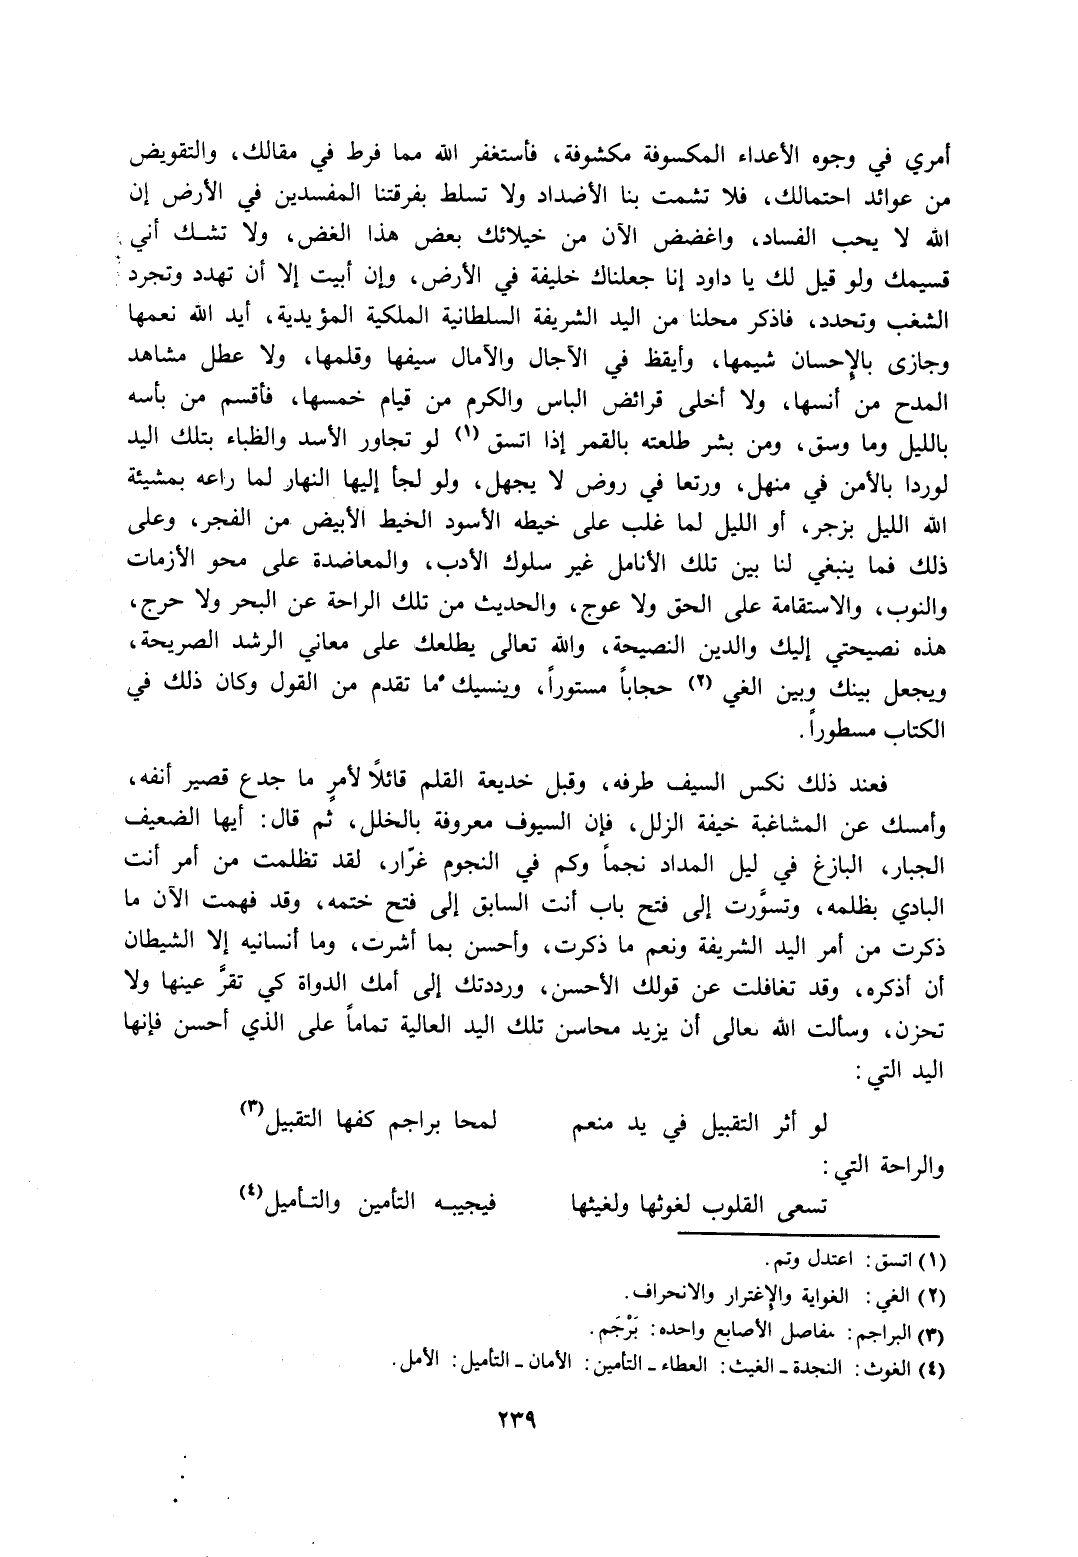 أمري في وجوه الأعداء المكسوفة مكشوفة، فأستغفر الله مما فرط في مقالك، والتقويض
من عوائد احتمالك، فلا تشمت بنا الأضداد ولا تسلط بفرقتنا المفسدين في الأرض إن
الله لا يحب الفساد، واغضض الآن من خيلائك بعض هذا الغض، ولا تشك أني
قسيمك ولو قيل لك يا داود إنا جعلناك خليفة في الأرض، وإن أبيت إلا أن تهدد وتجرد
الشغب وتحدد، فاذكر محلنا من اليد الشريفة السلطانية الملكية المؤيدية، أيد الله نعمها
وجازى بالإحسان شيمها، وأيقظ في الآجال والآمال سيفها وقلمها، ولا عطل مشاهد
المدح من أنسها، ولا أخلى قرائض الباس والكرم من قيام خمسها، فأقسم من بأسه
بالليل وما وسق، ومن بشر طلعته بالقمر إذا اتسق (١) لو تجاور الأسد والظباء بتلك اليد
لوردا بالأمن في منهل، ورتعا في روض لا يجهل، ولو لجأ إليها النهار لما راعه بمشيئة
الله الليل بزجر، أو الليل لما غلب على خيطه الأسود الخيط الأبيض من الفجر، وعلى
ذلك فما ينبغي لنا بين تلك الأنامل غير سلوك الأدب، والمعاضدة على محو الأزمات
والنوب، والاستقامة على الحق ولا عوج، والحديث من تلك الراحة عن البحر ولا حرج،
هذه نصيحتي إليك والدين النصيحة، والله تعالى يطلعك على معاني الرشد الصريحة،
ويجعل بينك وبين الغي (٢) حجاباً مستوراً، وينسيك ما تقدم من القول وكان ذلك في
الكتاب مسطوراً.
فعند ذلك نكس السيف طرفه، وقبل خديعة القلم قائلًا لأمرٍ ما جدع قصير أنفه،
وأمسك عن المشاغبة خيفة الزلل، فإن السيوف معروفة بالخلل، ثم قال: أيها الضعيف
الجبار، البازغ في ليل المداد نجماً وكم في النجوم غرّار، لقد تظلمت من أمر أنت
البادي بظلمه، وتسوَّرت إلى فتح باب أنت السابق إلى فتح ختمه، وقد فهمت الآن ما
ذكرت من أمر اليد الشريفة ونعم ما ذكرت، وأحسن بما أشرت، وما أنسانيه إلا الشيطان
أن أذكره، وقد تغافلت عن قولك الأحسن، ورددتك إلى أمك الدواة كي تقرَّ عينها ولا
تحزن، وسألت الله تعالى أن يزيد محاسن تلك اليد العالية تماماً على الذي أحسن فإنها
اليد التي:
لو أثر التقبيل في يد منعم لمحا براجم كفها التقبيل(٣)
والراحة التي:
تسعى القلوب لغوثها ولغيثها فيجيبه التأمين والتأميل(٤)
(١) اتسق: اعتدل وتم.
(٢) الغي: الغواية والإغترار والانحراف.
(٣) البراجم: مفاصل الأصابع واحده: بَرْجَم.
(٤) الغوث: النجدة ـ الغيث: العطاء ـ التأمين: الأمان ـ التأميل: الأمل.
٢٣٩